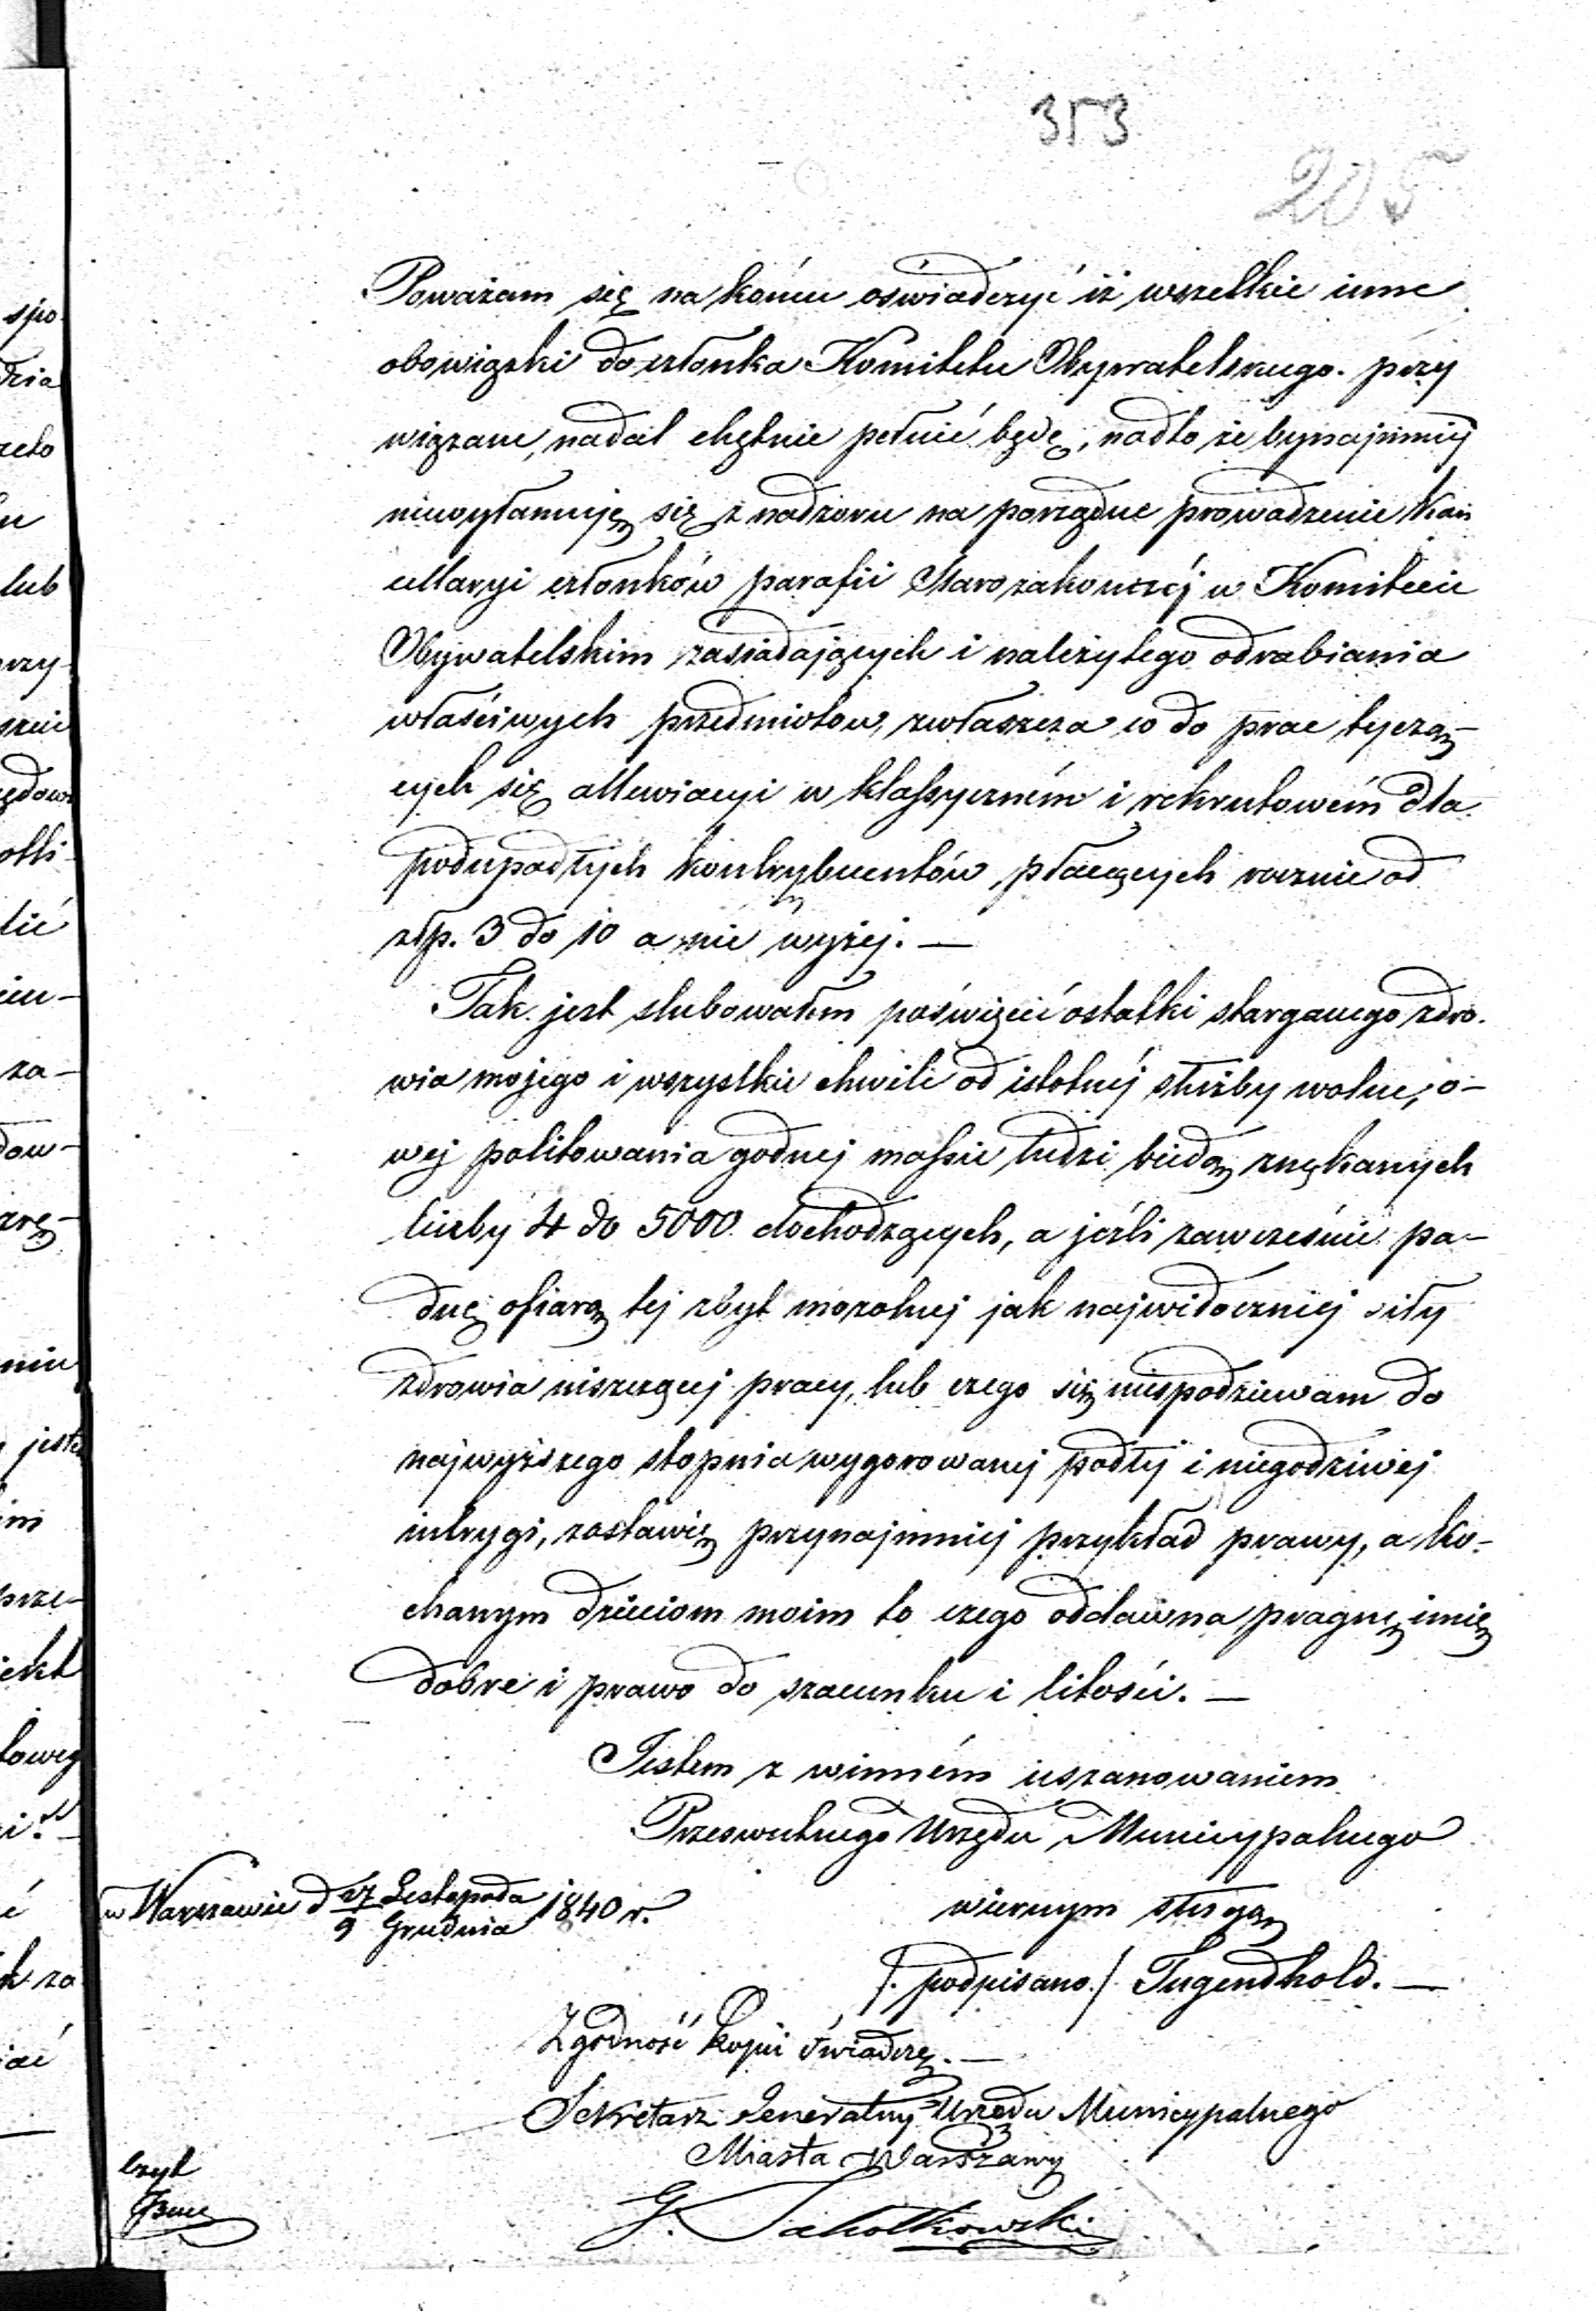 353
205
Poważam się na końcu oświadczyć iż wszelkie inne
obowiązki do członka Komitetu Obywatelskiego przy
wiązane, nadal chętnie pełnić będę, nadto że bynajmniej
niewyłamuję się z nadzoru na porządne prowadzenie Kan
cellaryi członków parafii Starozakonnéj w Komitecie
Obywatelskim zasiadających i należytego odrabiania
właściwych przedmiotow, zwłaszcza co do prac tyczą-
cych się allewiacyi w klassyczném i rekrutowém dla
podupadłych kontrybuentów, płacących rocznie od
złp. 3 do 10 a nie wyżej. —
Tak jest slubowałem poświęcić ostatki starganego zdro-
wia mojego i wszystkie chwile od istotnéj służby wolne, o-
wej politowania godnej massie ludzi biedą znękanych
liczby 4 do 5000 dochodzących, a jeźli zawcześnie pa-
dnę ofiarą tej zbyt mozolnej jak najwidoczniej siły
zdrowia niszczącej pracy, lub czego się niespodziewam do
najwyższego stopnia wygorowanej podłej i niegodziwej
intrygi, zostawię przynajmniej przykład prawy, a ko-
chanym dzieciom moim to czego oddawna pragnę imię
dobre i prawo do szacunku i litości. —
Jestem z winném uszanowaniem
Prześwietnego Urzędu Municypalnego
w Warszawie d 27 Listopada / 9 Grudnia 1840 r.
wiernym sługą
/. podpisano./ Tugendhold. —
Zgodność kopii świadczę. —
Sekretarz Generalny Urzędu Municypalnego
Miasta Warszawy
G.
spo
dzia
lub
za-